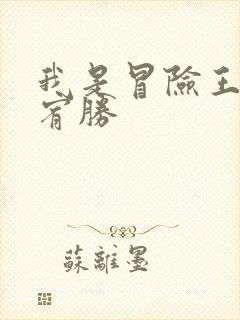 我是冒險王
宥勝
蘇離墨